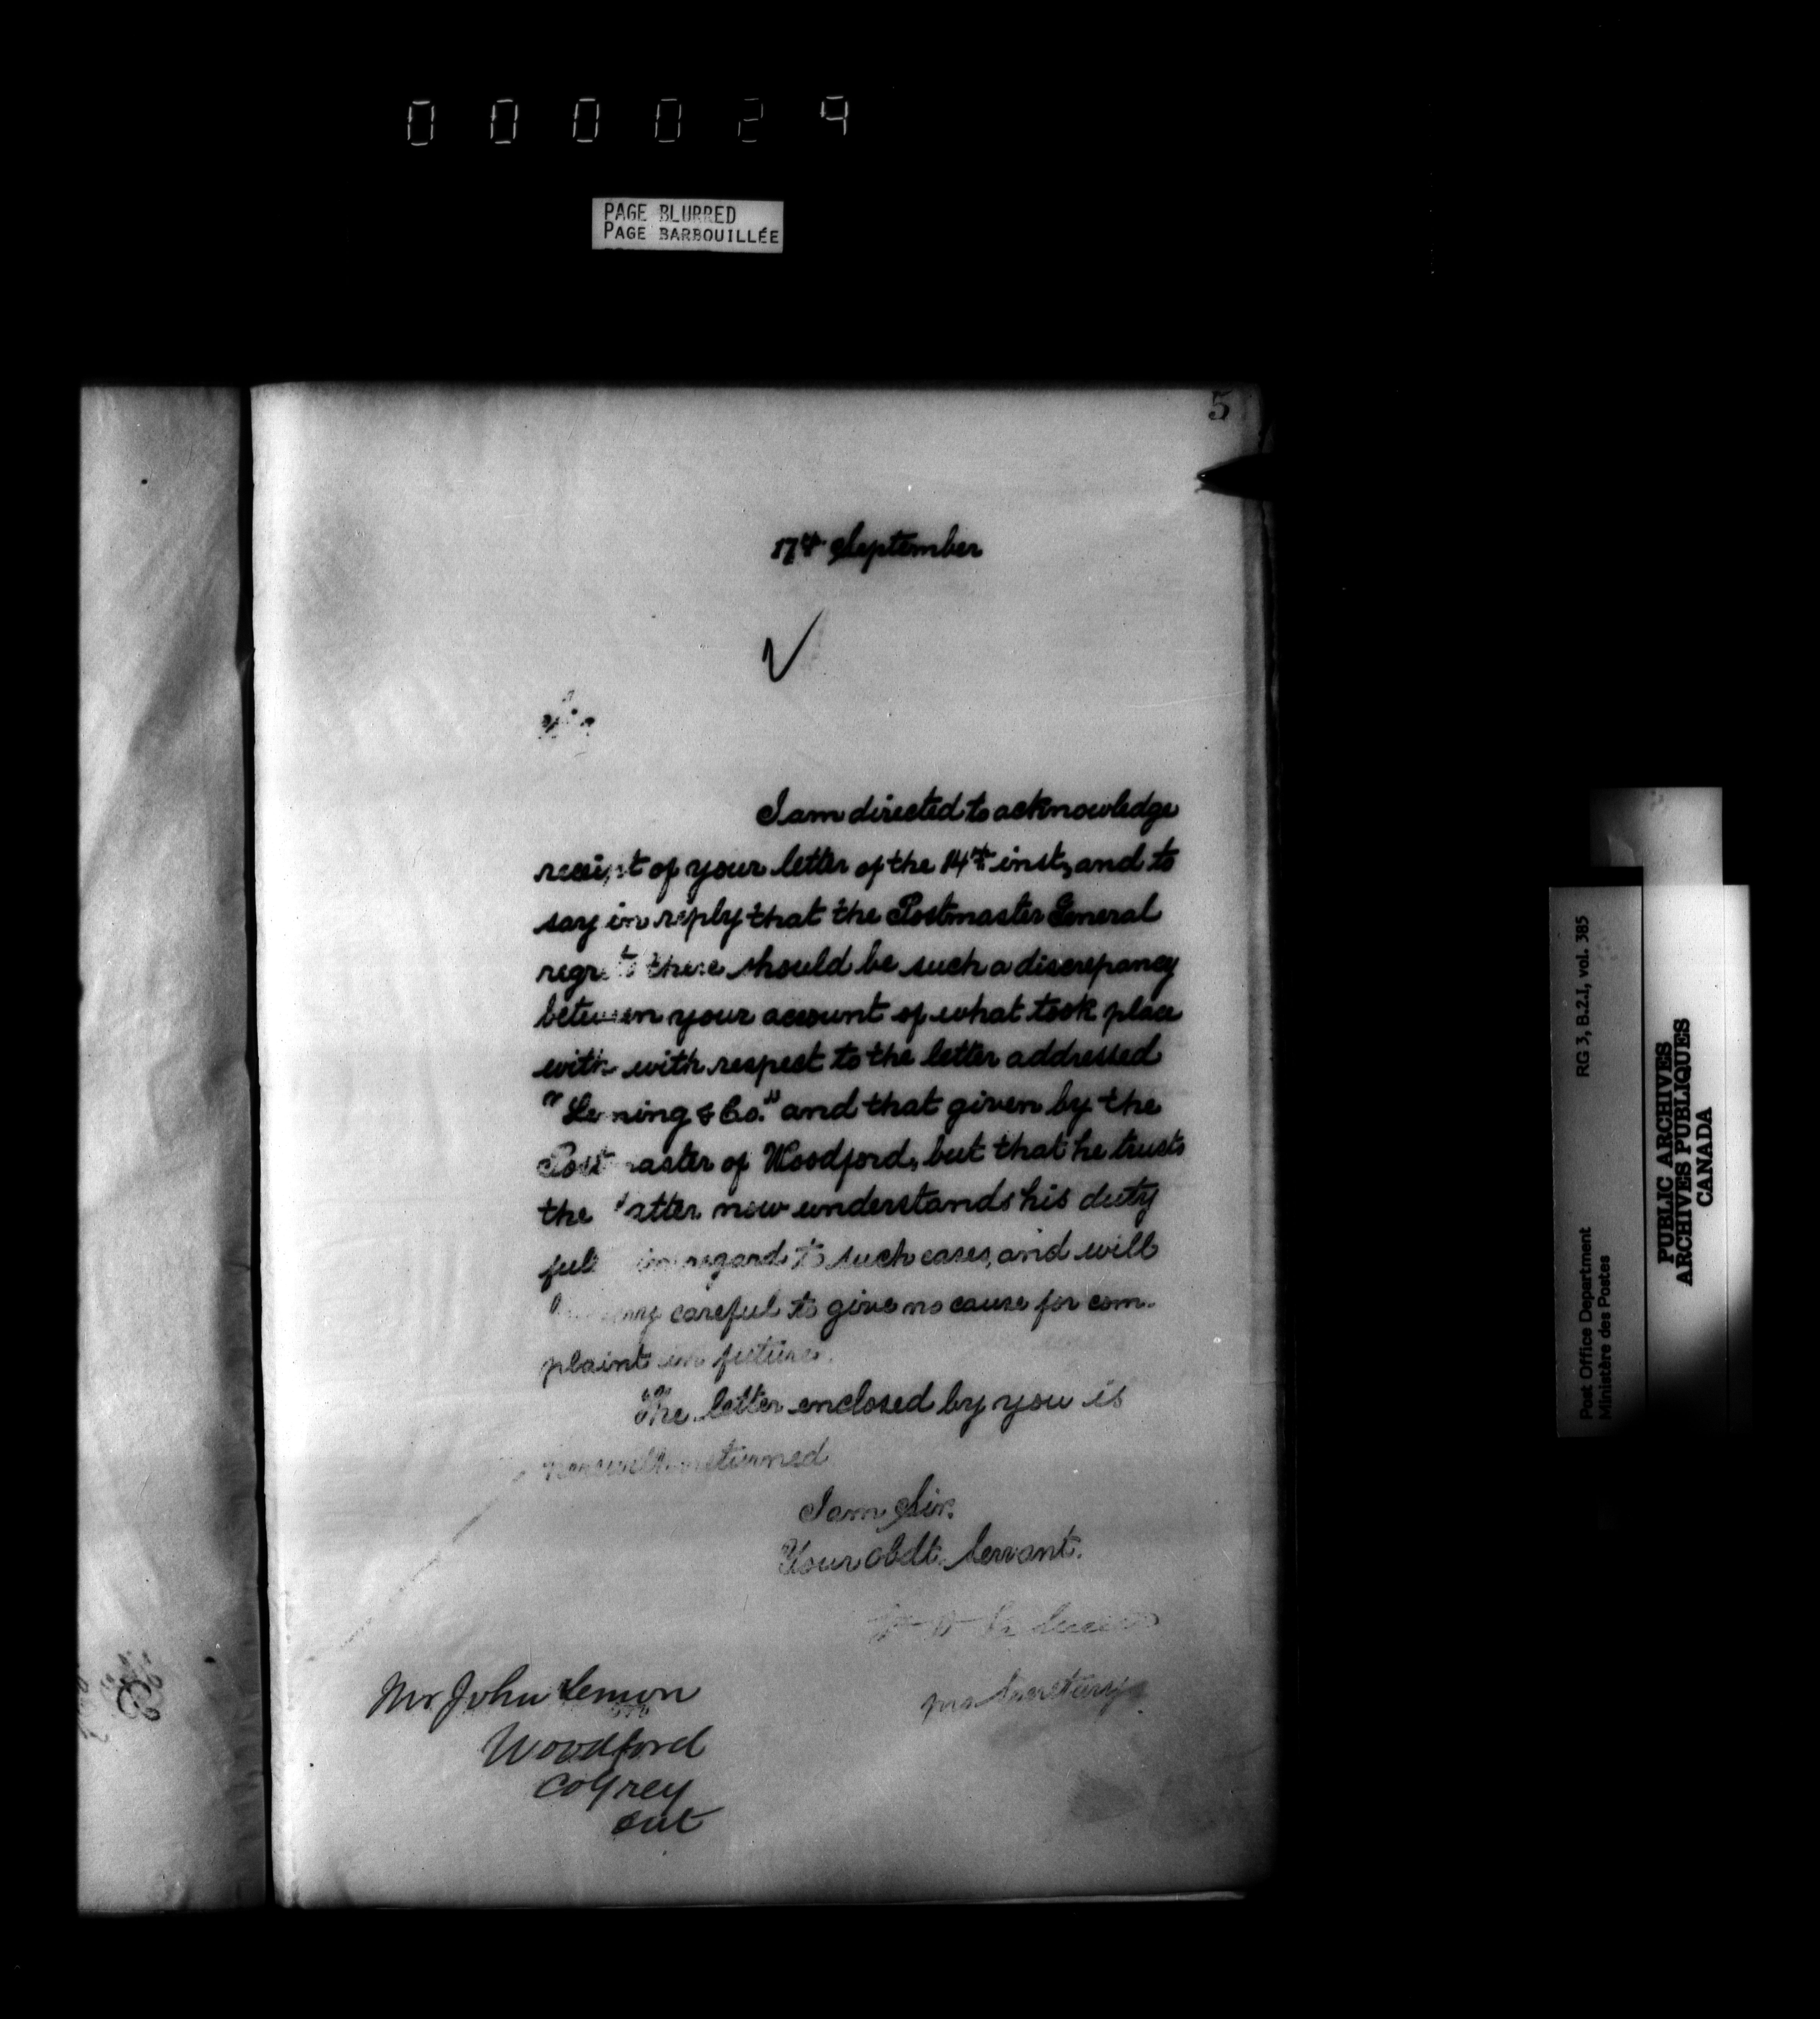 000029
PAGE BLURRED
PAGE BARBOUILLÉE
5
17th September
I am directed to acknowledge
receipt of your letter of the 14th inst, and to
say in reply that the Postmaster General
regrets there should be such a discrepancy
between your account of what took place
with with respect to the letter addressed
"Lemning & Co." and that given by the
Postmaster of Woodford, but that he trusts
the latter now understands his duty
fully in regard to such cases, and will
be very careful to give no cause for com-
plaint in future.
The letter enclosed by you is
herewith returned
I am Sir.
Your obdt. Servant.
Secretary
Mr John Lemon
Woodford
Co Grey
Ont
RG 3, B.2.I, vol. 385
Post Office Department
Ministère des Postes
PUBLIC ARCHIVES
ARCHIVES PUBLIQUES
CANADA